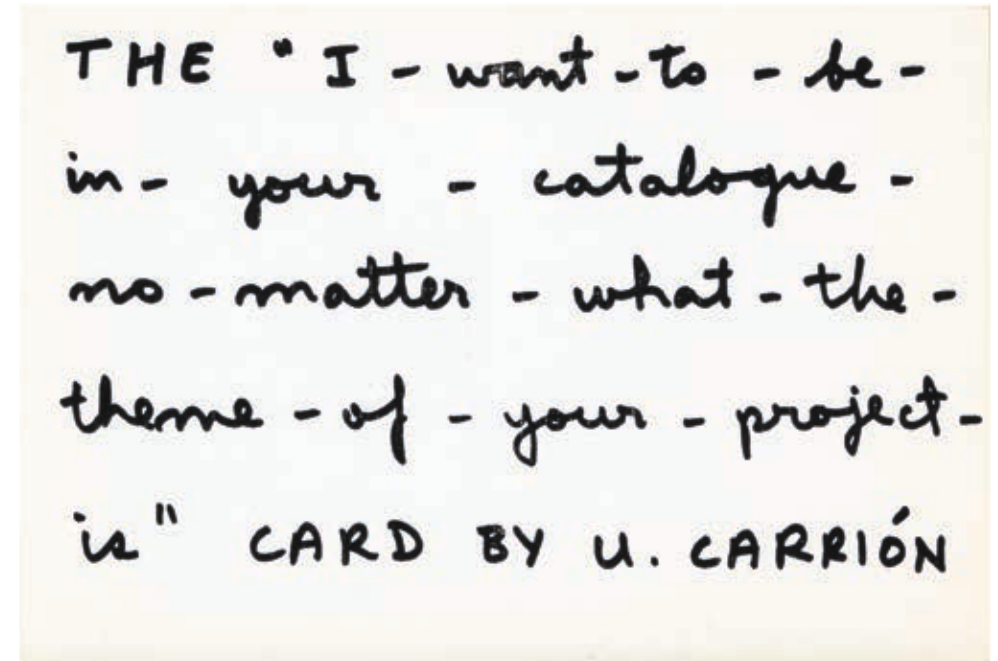 THE "I - want - to - be -
in - your - catalogue -
no - matter - what - the -
theme - of - your - project -
is" CARD BY U. CARRIÓN